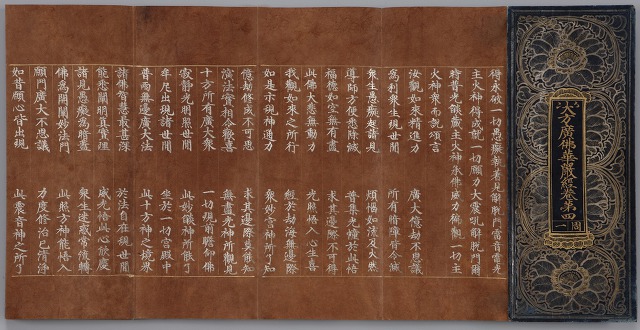 大方廣佛華嚴經卷第四
周
一
得永破一切愚癡執著見解脫門雷音電光
主火神得成就一切願力大震吼解脫門爾
時普光焰藏主火神承佛威力徧觀一切主
火神眾而說頌言
汝觀如來精進力 廣大億劫不思議
為利眾生現世間 所有暗障皆令滅
眾生愚癡起諸見 煩惱如流及火然
導師方便悉除滅 普集光幢於此悟
福德如空無有盡 求其邊際不可得
此佛大悲無動力 光照悟入心生喜
我觀如來之所行 經於劫海無邊際
如是示現神通力 眾妙宮神所了知
億劫修成不可思 求其邊際莫能知
演法實相令歡喜 無盡光神所觀見
十方所有廣大眾 一切現前瞻仰佛
寂靜光明照世間 此妙焰神所能了
牟尼出現諸世間 坐於一切宮殿中
普雨無邊廣大法 此十方神之境界
諸佛智慧最甚深 於法自在現世間
能悉闡明真實理 威光悟此心欣慶
諸見愚癡為暗蓋 眾生迷惑常流轉
佛為開闡妙法門 此照方神能悟入
願門廣大不思議 力度修治已清淨
如昔願心皆出現 此震音神之所了